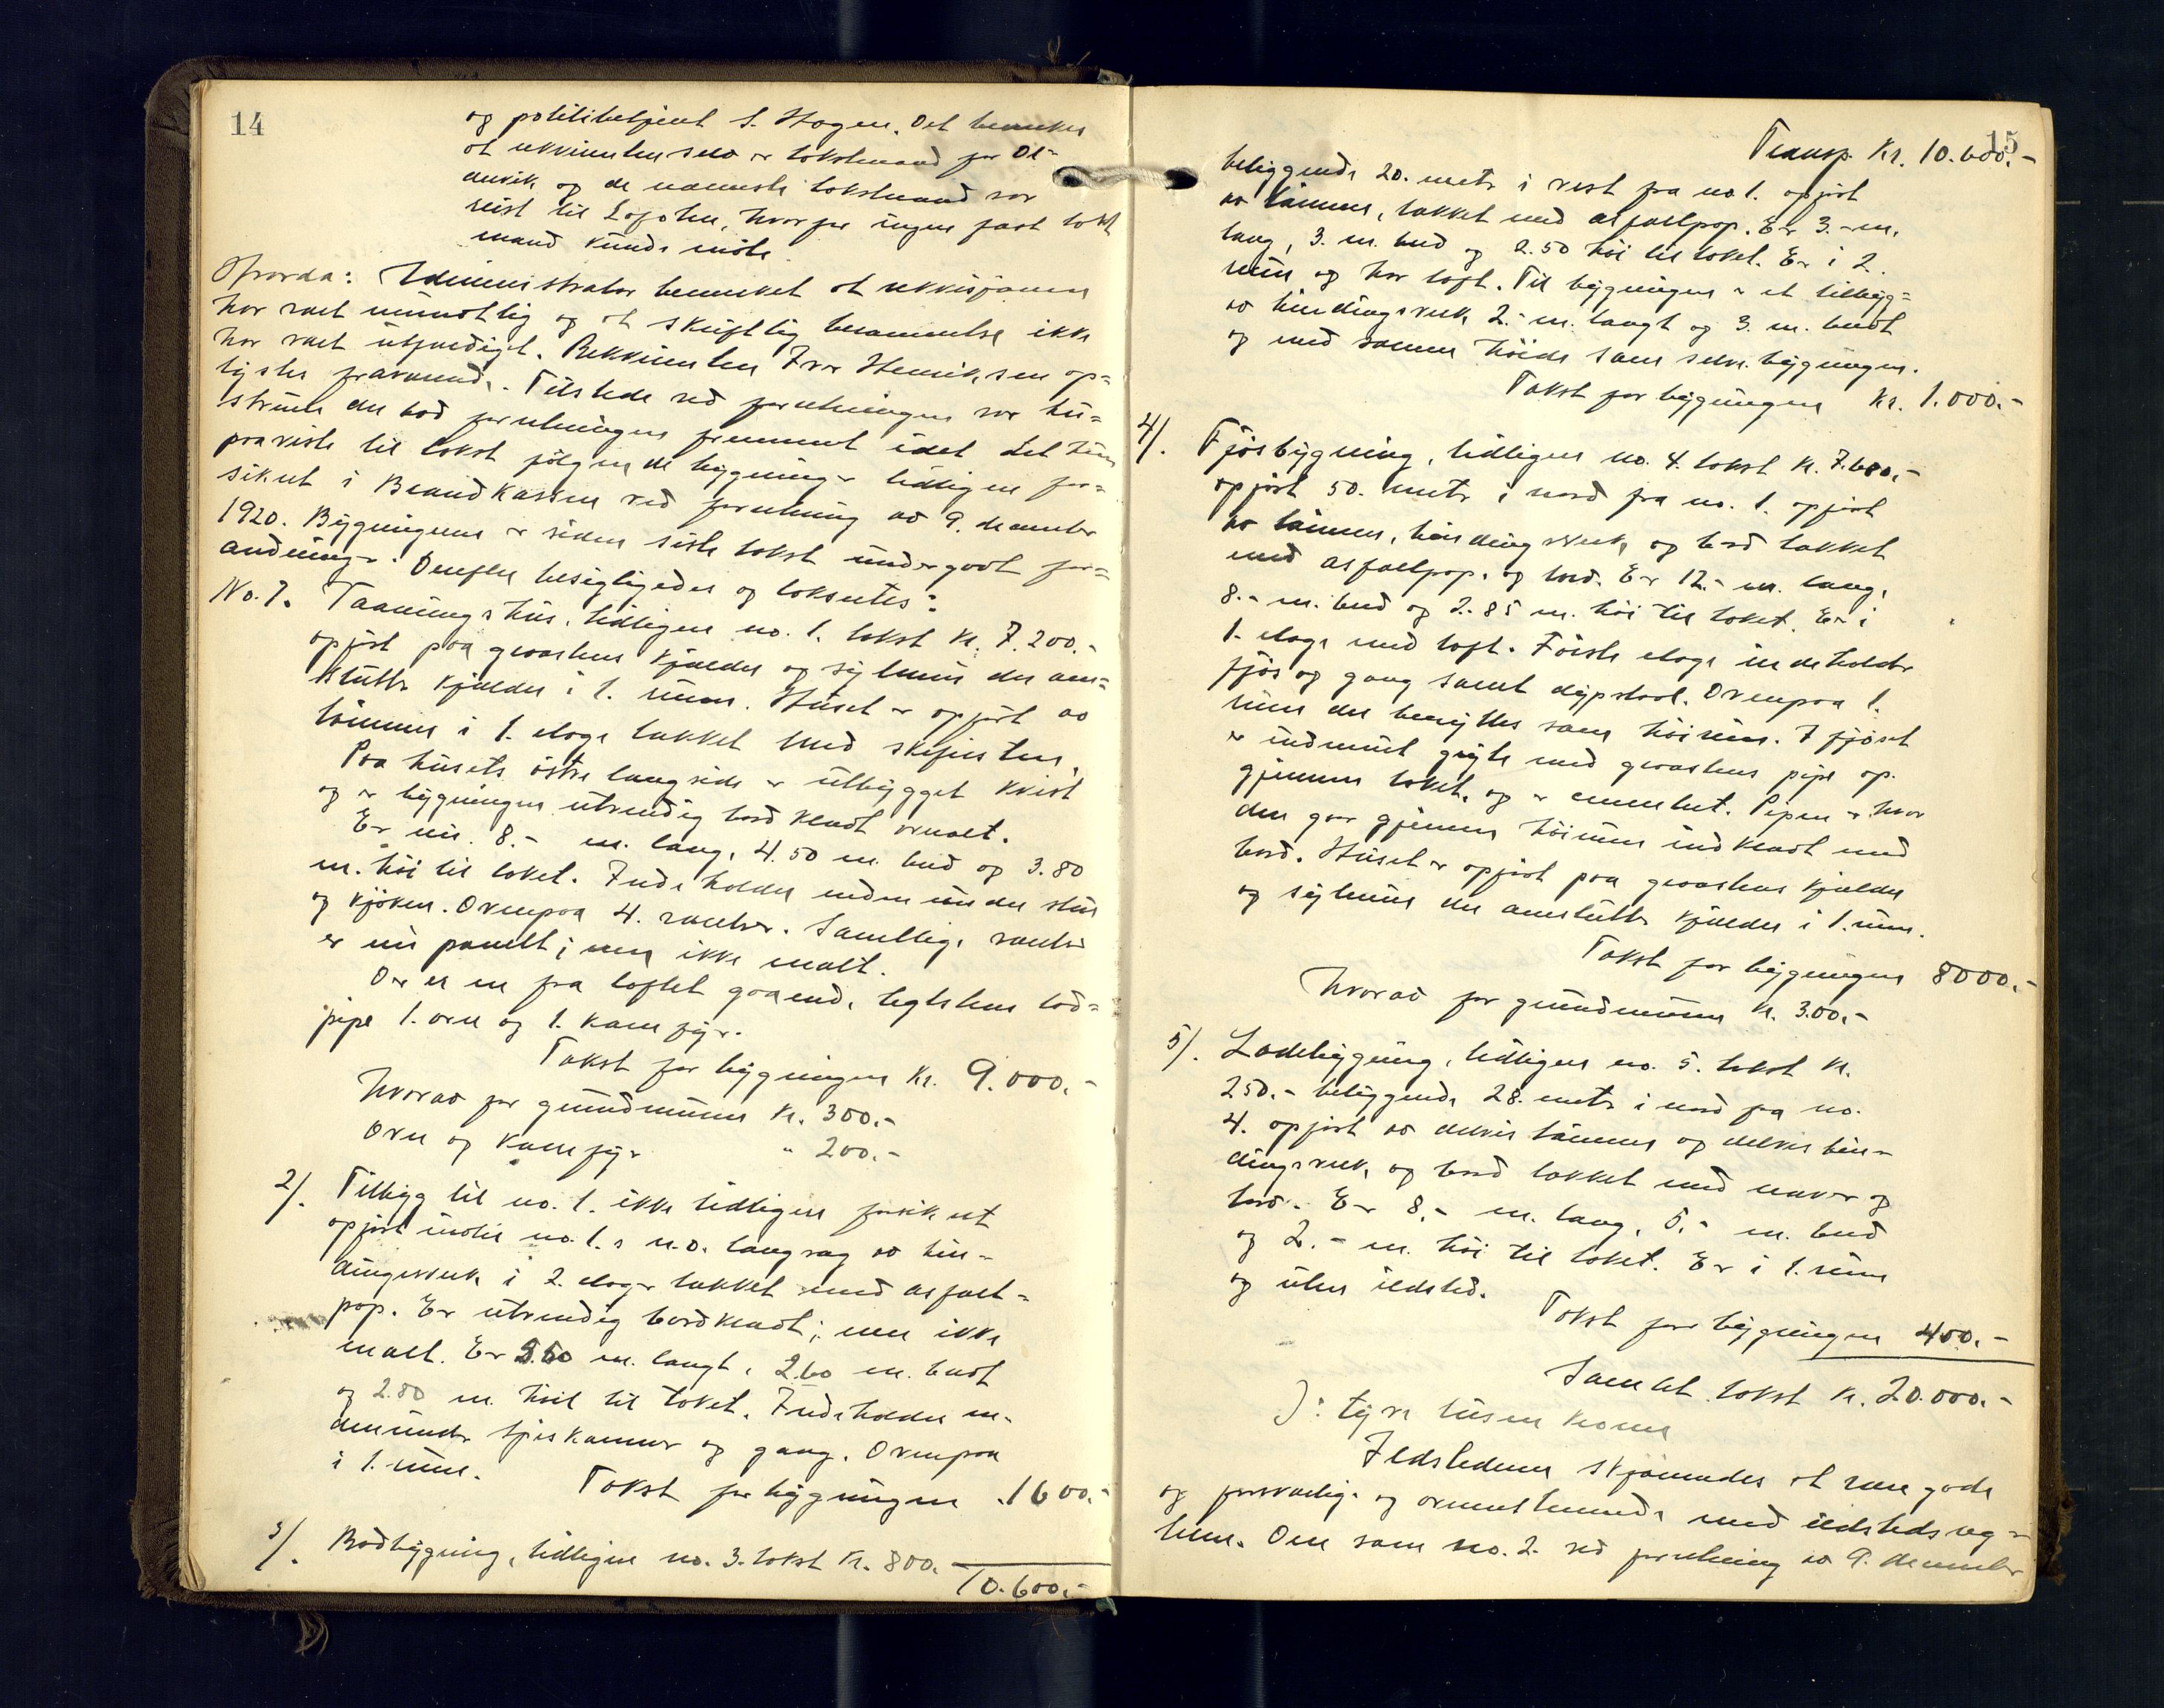 14
og politibetjent S. Hagen. Det bemerkes
at rekvirenten selv er takstmand for Ol-
dervik og de nærmeste takstmænd var
reist til Lofoten, hvorfor ingen fast takst
mand kunde møte.
Ofvorda: Administrator bemerket at rekvisjonen
har vært mundtlig og at skriftlig berammelse ikke
har vært utfærdiget. Rekvirenten Ivar Henriksen op-
lystes fraværende. Tilstede ved forretningen var hu-
struen der bad forretningen fremmet idet det hun
paaviste til takst følgende bygninger tidligere for-
sikret i Brandkassen ved forretning av 9. december
1920. Bygningene er siden siste takst undergaat for-
andringer. Derefter besigtigedes og takseredes:
No. 1. Vaaningshus, tidligere no. 1. takst kr. 7.200.-
opført paa graastens kjelder og sylmur der om-
slutter kjelder i 1. rum. Huset er opført av
tømmer i 1. etage tækket med skifersten.
Paa husets østre langside er utbygget kvist
og er bygningen utvendig bordklædt malt.
Er nu 8.- m. lang, 4.50 m. bred og 3.80
m. høi til taket. Indeholder nedenunder stue
og kjøken. Ovenpaa 4. værelser. Samtlige værelser
er nu panelt; men ikke malt.
Der er en fra loftet gaaende teglstens lod-
pipe 1. ovn og 1. komfyr.
Takst for bygningen Kr. 9.000.-
Hvorav for grundmuren kr. 300.-
Ovn og komfyr " 200.-
2/. Tilbygg til no. 1. ikke tidligere forsikret
opført indtil no. 1.s n.o. langvæg av bin-
dingsverk i 2 etager tækket med asfalt-
pap. Er utvendig bordklædt; men ikke
malt. Er 3.60 m. langt, 2.60 m. bredt
og 2.80 m. høit til taket. Indeholder ne-
denunder spiskammer og gang. Ovenpaa
i 1. rum.
Takst for bygningen 1600.-
3/. Bodbygning, tidligere no. 3. takst Kr. 800.-
10.600.-
15
Transp. Kr. 10.600.-
beliggende 20. meter i vest fra no 1. opført
av tømmer, tækket med asfaltpap. Er 3.- m.
lang, 3. m. bred og 2.50 høi til taket. Er i 2.
rum og har loft. Til bygningen er et tilbyg-
av bindingsverk 2.- m. langt og 3. m. bredt
og med samme høide som selve bygningen.
Takst for bygningen Kr. 1.000.-
4/. Fjøsbygning, tidligere no. 4. takst kr. 7.600.-
opført 50. meter i nord fra no. 1. opført
av tømmer, bindingsverk og bord tækket
med asfaltpap. og bord. Er 12.- m. lang,
8.- m. bred og 2.85 m. høi til taket. Er i
1. etage med loft. Første etage indeholder
fjøs og gang samt dypstal. Ovenpaa 1.
rum der benyttes som høirum. I fjøset
er indmuret gryte med graastens pipe op.
gjennem taket, og er cementert. Pipen er hvor
den gaar gjennem høirum indklædt med
bord. Huset er opført paa graastens kjelder
og sylmur der omslutter kjelder i 1. rum.
Takst for bygningen 8000.-
Hvorav for grundmuren Kr. 300.-
5/. Ladebygning, tidligere no. 5. takst kr.
250.- beliggende 28. meter i nord fra no.
4. opført av delvis tømmer og delvis bin-
dingsverk og bord tækket med næver og
torv. Er 8.- m. lang, 5.- m. bred
og 2.- m. høi til taket. Er i 1. rum
og uten ildsted.
Takst for bygningen 400.-
Samlet takst kr. 20.000.-
): tyve tusen kroner
Ildstedene skjønnedes at være gode
og forsvarlige og overensstemmende med ildstedsreg-
lene. Den som no. 2. ved forretning av 9. december